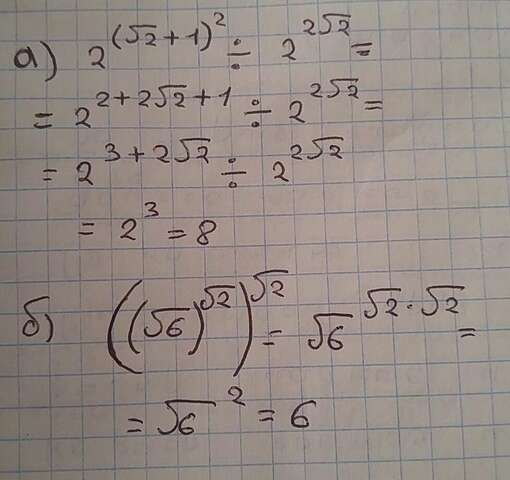 а) 2^(√2+1)^2 ÷ 2^2√2 =
= 2^2+2√2+1 ÷ 2^2√2 =
= 2^3+2√2 ÷ 2^2√2
= 2^3 = 8
б) ((√6)^√2)^√2 = √6^√2·√2 =
= √6^2 = 6